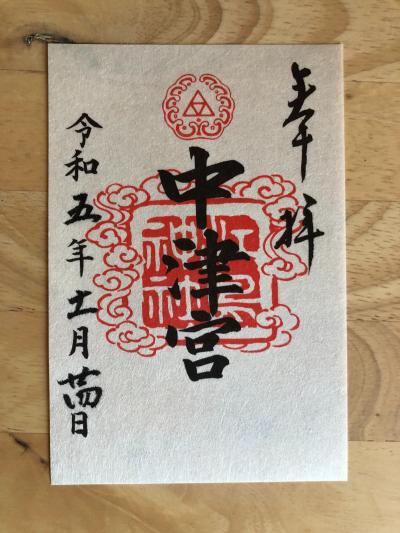 奉拝
中津宮
令和五年十一月廿四日